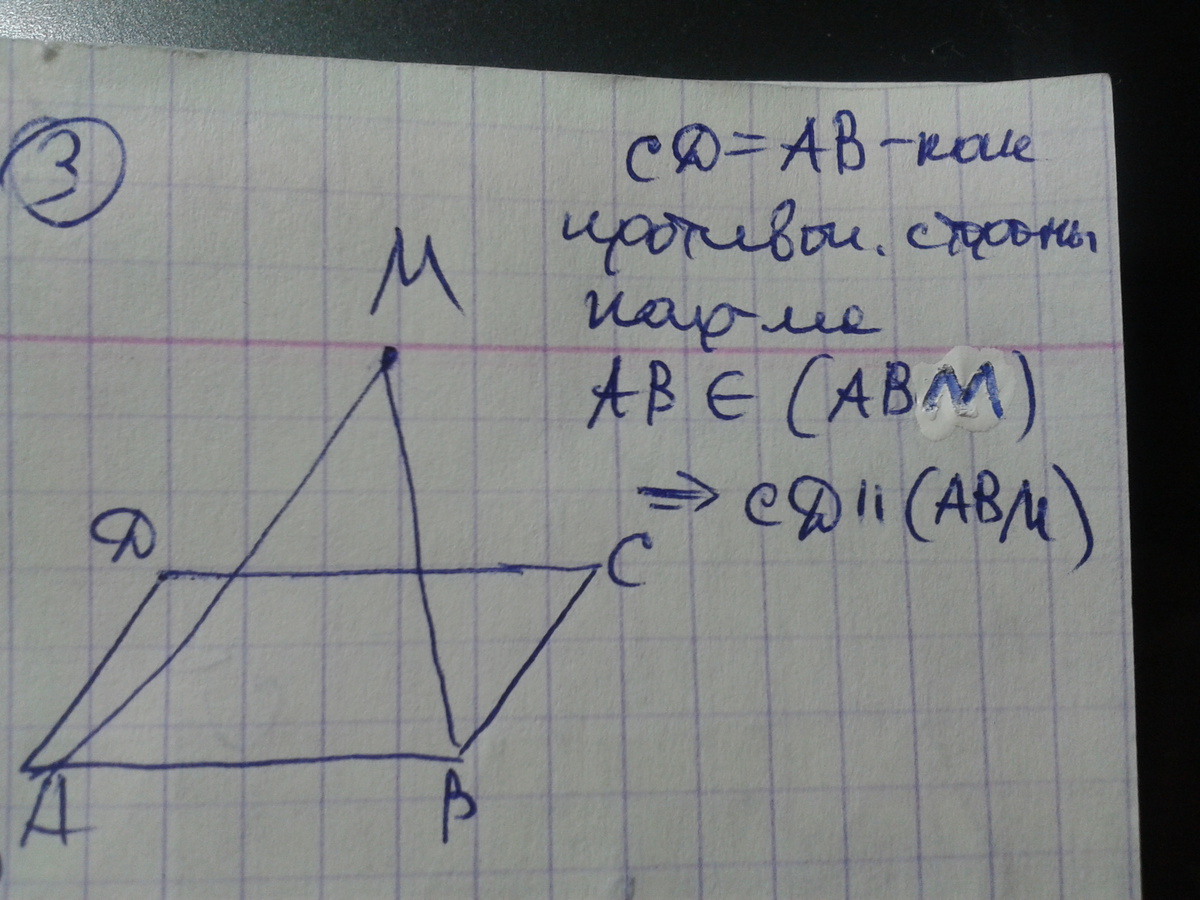 3
CД = AB - как
противоп. стороны
пар-ма
AB ∈ (ABM)
⇒ CД || (ABM)
M
Д
C
A
B